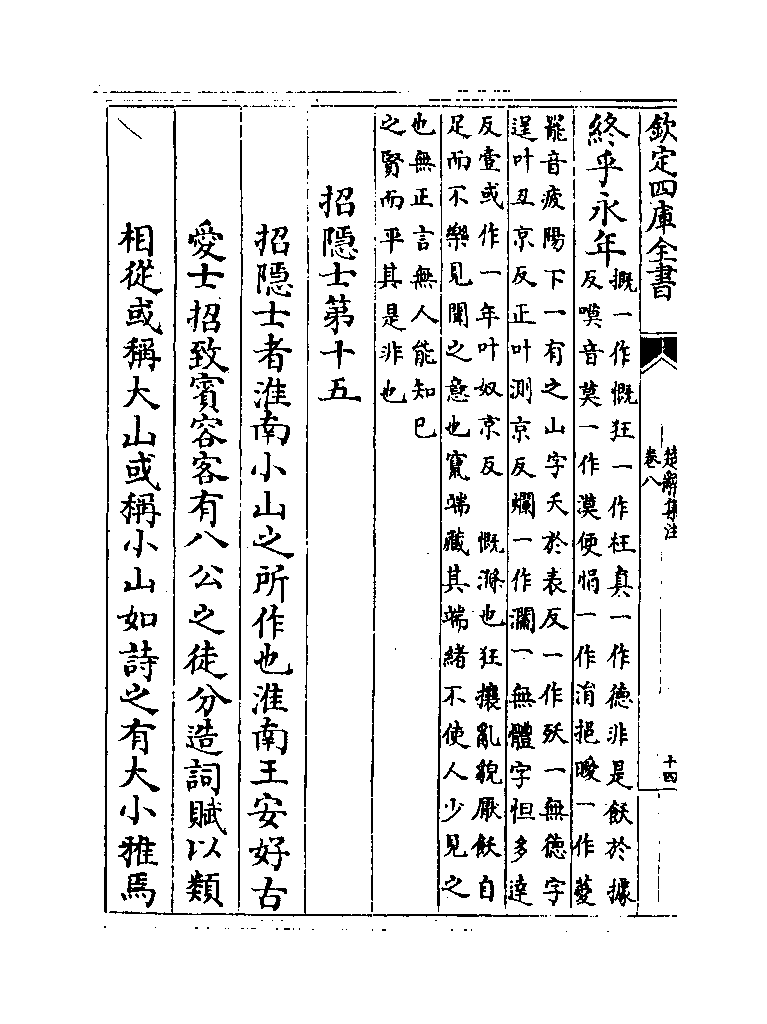 欽定四庫全書
楚辭集注
卷八
十四
終乎永年
概一作慨狂一作枉真一作徳非是飫於據
反嘆音莫一作漠便悁一作涓挹曖一作薆
罷音疲陽下一有之山字夭於表反一作殀一無徳字
逞叶丑京反正叶測京反爛一作瀾一無體字怛多達
反壹或作一年叶奴京反　慨滌也狂攘亂貌厭飫自
足而不樂見聞之意也竄端藏其端緒不使人少見之
也無正言無人能知己
之賢而平其是非也
招隱士第十五
招隱士者淮南小山之所作也淮南王安好古
愛士招致賓客客有八公之徒分造詞賦以類
相從或稱大山或稱小山如詩之有大小雅焉